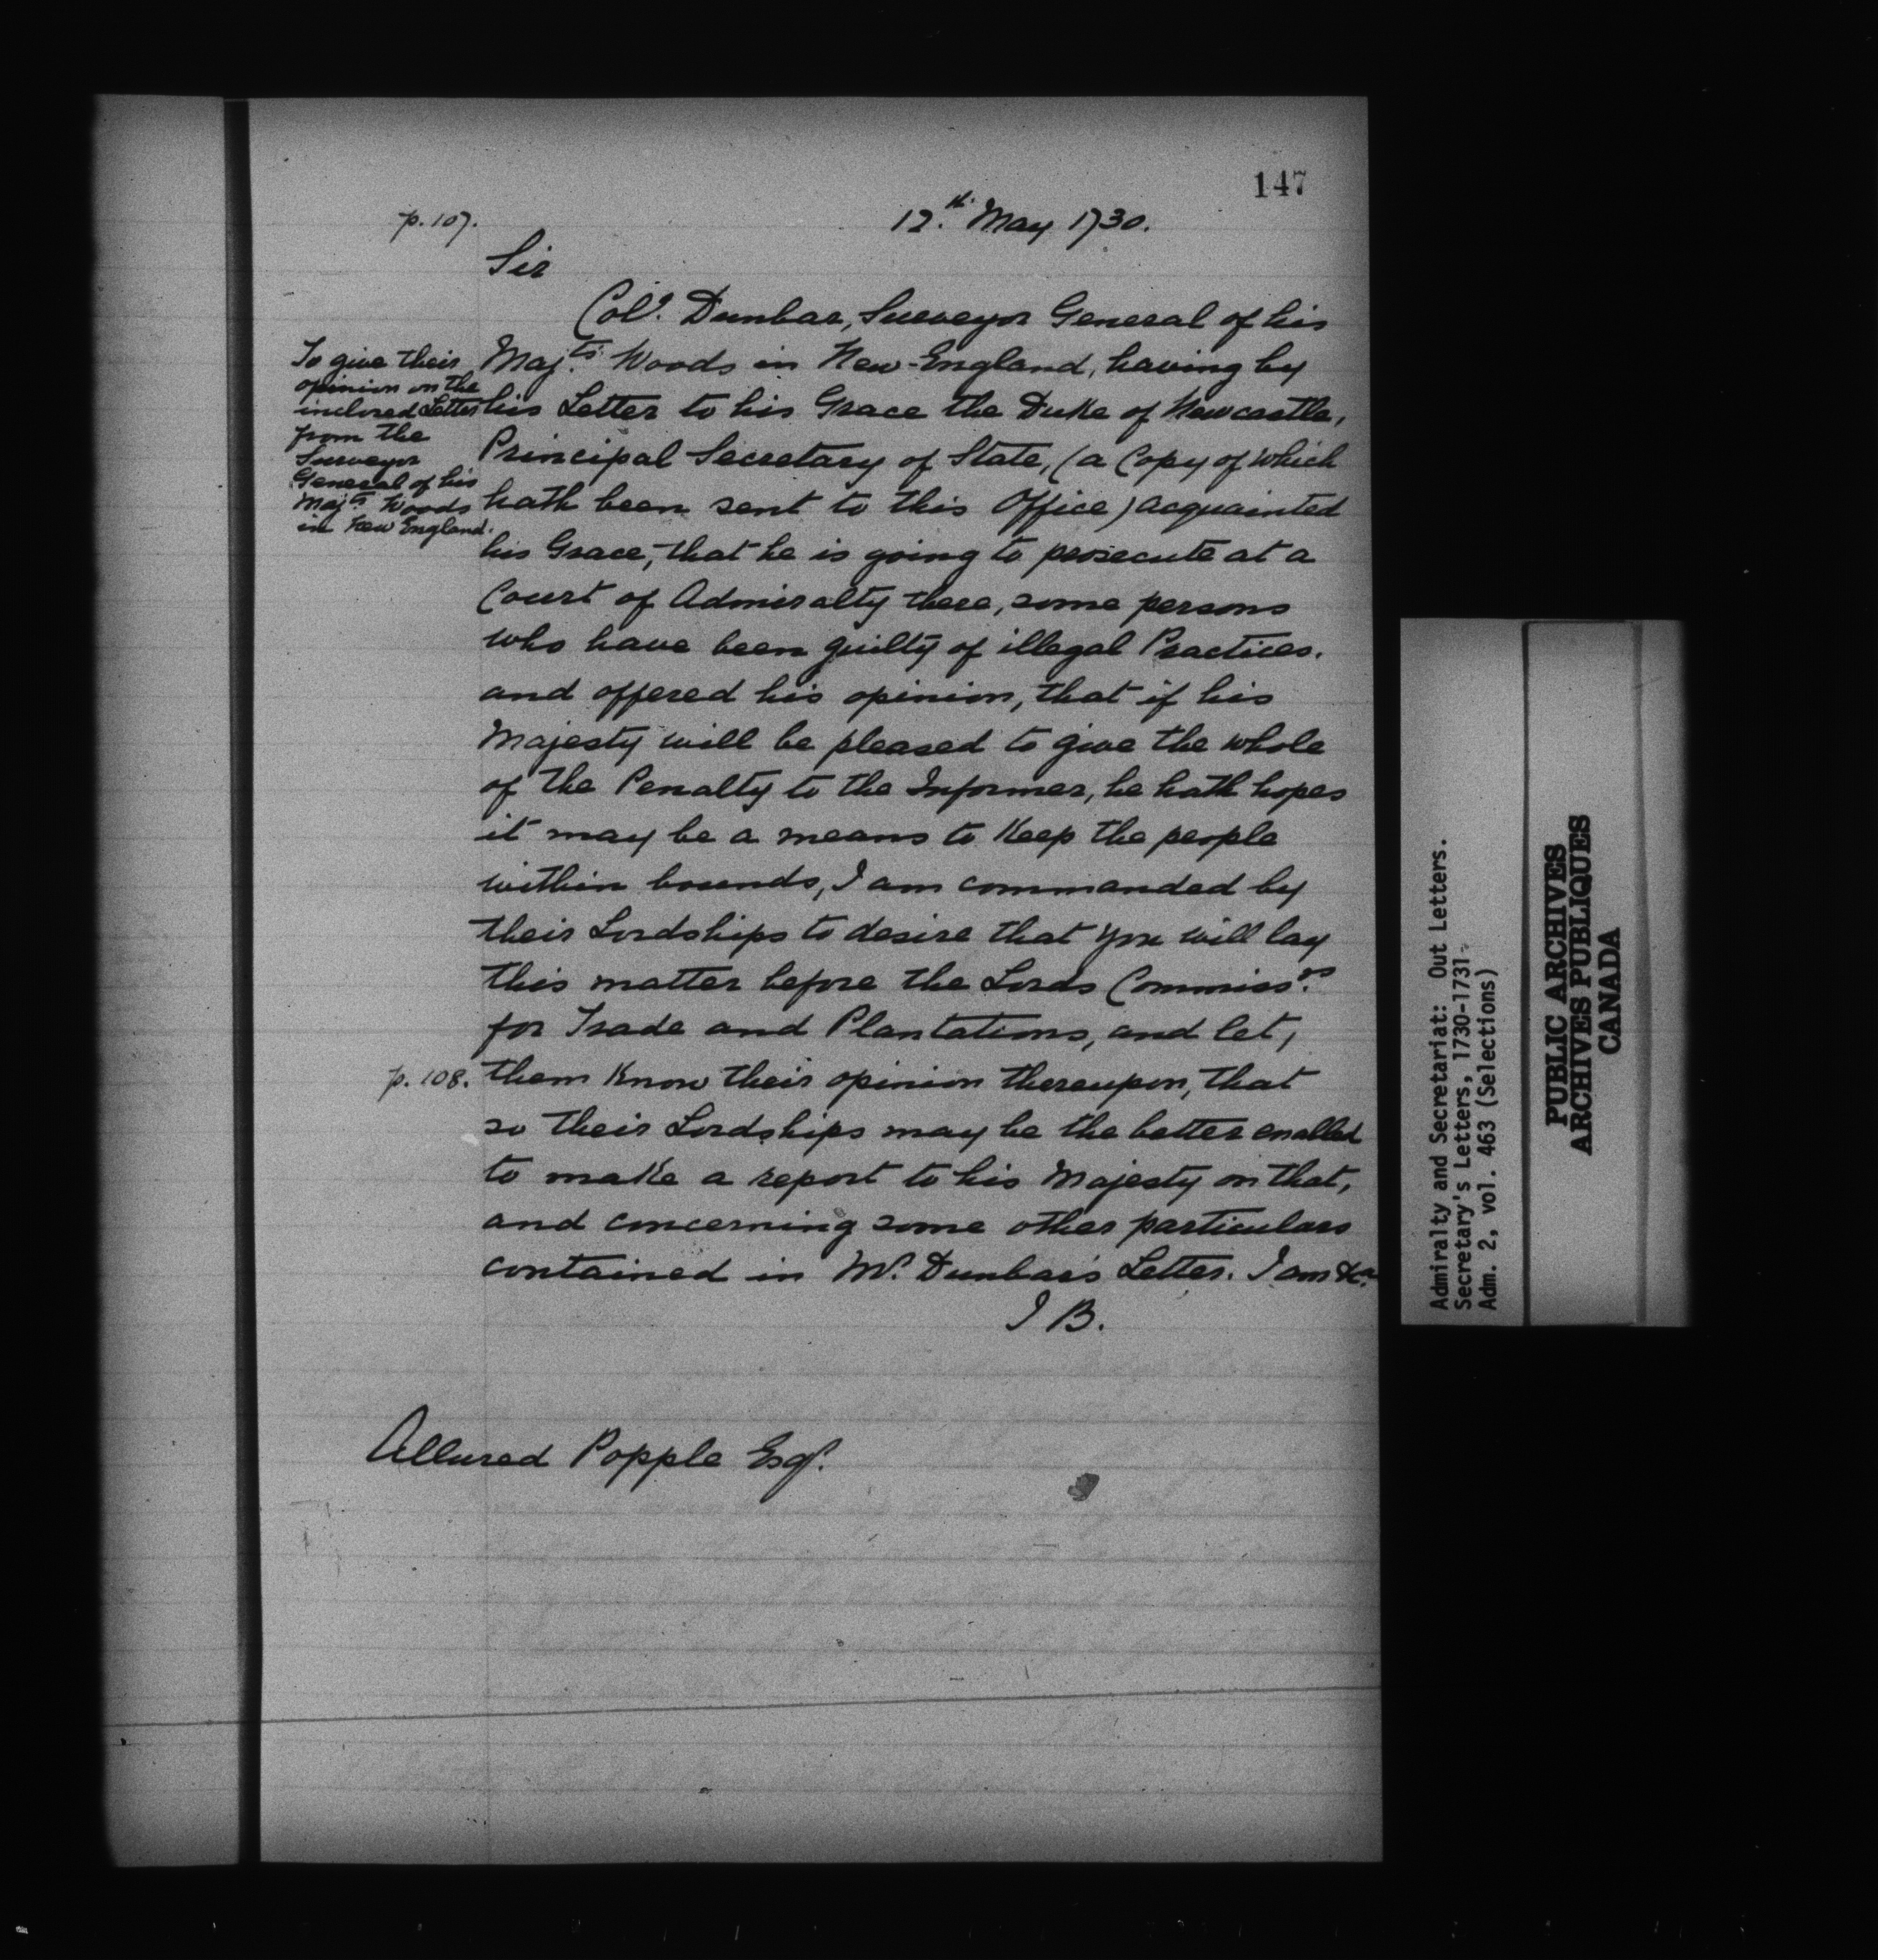 147
p. 107.
12.th May 1730.
Sir
Col.l Dunbar, Surveyor General of his
Maj.ts Woods in New-England, having by
his Letter to his Grace the Duke of Newcastle,
Principal Secretary of State, (a Copy of which
hath been sent to this Office) acquainted
his Grace, that he is going to prosecute at a
Court of Admiralty there, some persons
who have been guilty of illegal Practices.
and offered his opinion, that if his
Majesty will be pleased to give the whole
of the Penalty to the Informer, he hath hopes
it may be a means to Keep the people
within bounds, I am commanded by
their Lordships to desire that you will lay
this matter before the Lords Commiss.rs
for Trade and Plantations, and let,
p. 108. them Know their opinion thereupon, that
so their Lordships may be the better enabled
to make a report to his Majesty on that,
and concerning some other particulars
contained in M.r Dunbar's Letter. I am &c.a
J B.
Allured Popple Esq.r
To give their
opinion on the
inclosed Letter
from the
Surveyor
General of his
Maj.ts Woods
in New England.
Admiralty and Secretariat: Out Letters.
Secretary's Letters, 1730-1731.
Adm. 2, vol. 463 (Selections)
PUBLIC ARCHIVES
ARCHIVES PUBLIQUES
CANADA